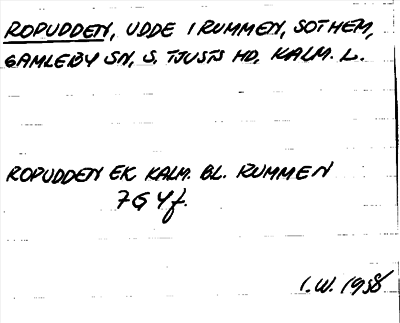 ROPUDDEN, UDDE I RUMMEN, SOTHEM,
GAMLEBY SN, S. TJUSTS HD, KALM. L.
ROPUDDEN EK. KALM. BL. RUMMEN
7G4f.
I.W. 1958